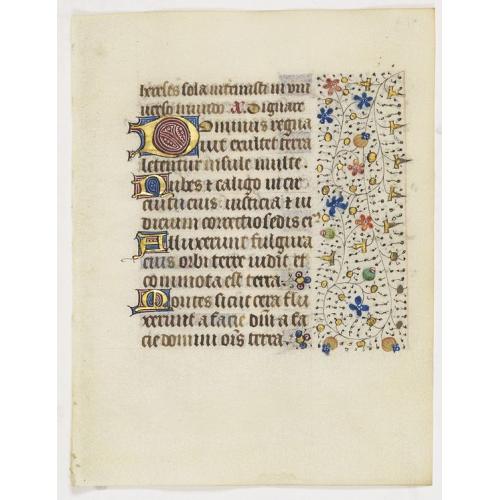 hereses sola interemisti in uni
uerso mundo. A. Dignare
Dominus regna
uit exultet terra
letentur insule multe.
Nubes & caligo in cir
cuitu eius iusticia & iu
dicium correctio sedis ei⁹
Alluxerunt fulgura
eius orbi terre uidit et
commota est terra.
Montes sicut cera flu
xerunt a facie dñi a fa
cie domini oı̄s terra.